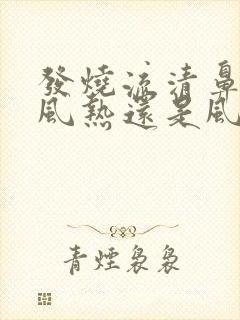 發燒流清鼻
風熱還是風
青煙裊裊